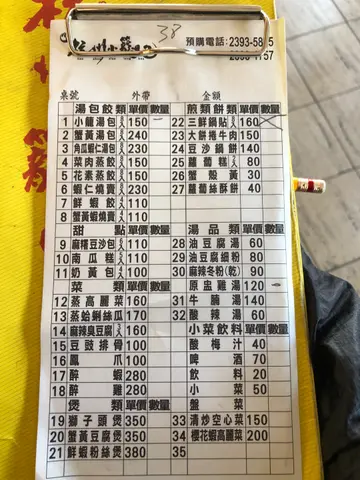 38
預購電話:2393-58 5
桌號 外帶 金額
湯包餃類 單價 數量 煎類餅類 單價 數量
1 小籠湯包 150 22 三鮮鍋貼 160
2 蟹黃湯包 240 23 大餅捲牛肉 150
3 角瓜蝦仁湯包 230 24 豆沙鍋餅 140
4 菜肉蒸餃 150 25 蘿蔔糕 80
5 花素蒸餃 150 26 蟹殼黃 30
6 蝦仁燒賣 230 27 蘿蔔絲酥餅 40
7 鮮蝦餃 110
8 蟹黃蝦燒賣 110
甜點 單價 數量 湯品類 單價 數量
9 麻糬豆沙包 110 28 油豆腐湯 60
10 南瓜糕 110 29 油豆腐細粉 80
11 奶黃包 100 30 麻辣冬粉(乾) 90
菜類 單價 數量 原盅雞湯 120
12 蒸高麗菜 160 31 牛腩湯 140
13 蒸蛤蜊絲瓜 170 32 酸辣湯 60
14 麻辣臭豆腐 160 小菜飲料 單價 數量
15 豆豉排骨 100 酸梅汁 40
16 鳳爪 100 啤酒 70
17 醉蝦 280 飲料 20
18 醉雞 280 小菜 50
煲類 單價 數量 盤菜
19 獅子頭煲 350 33 清炒空心菜 150
20 蟹黃豆腐煲 350 34 櫻花蝦高麗菜 200
21 鮮蝦粉絲煲 380 35